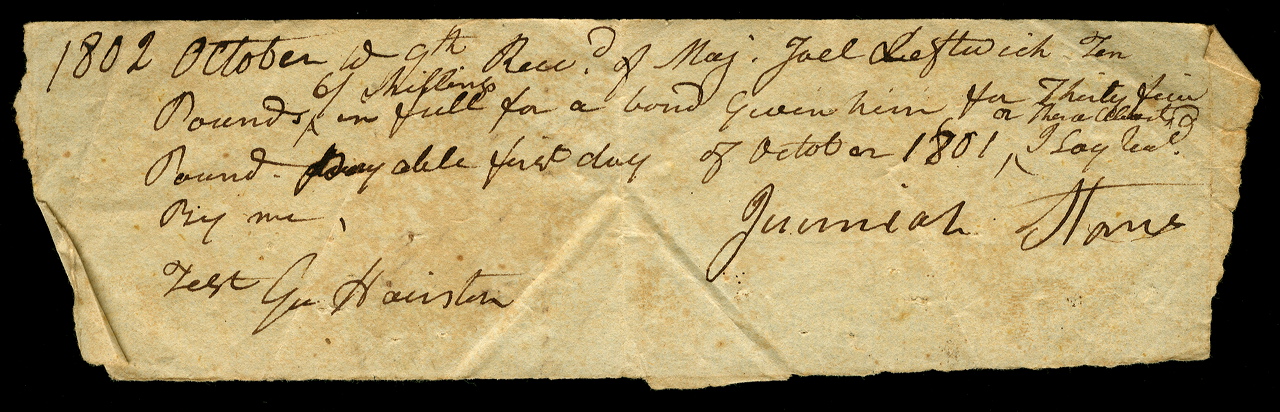 1802 October the 9th Recd. of Maj. Joel Leftwich Ten
6/ Shillings
Pounds, in full for a bond Given him for Thirty five
or thereabouts
Pound - payable first day of October 1801, I Say Recd.
By me,
Jeremiah Stone
Test Go Hairston